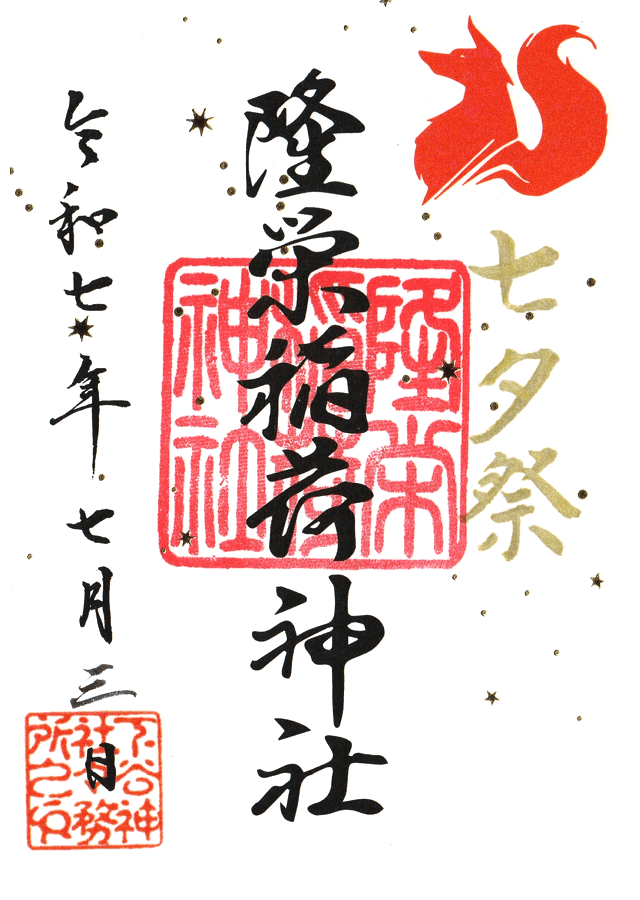 七夕祭
隆栄稲荷神社
隆栄
稲荷
神社
令和七年七月三日
下谷神
社社務
所之印